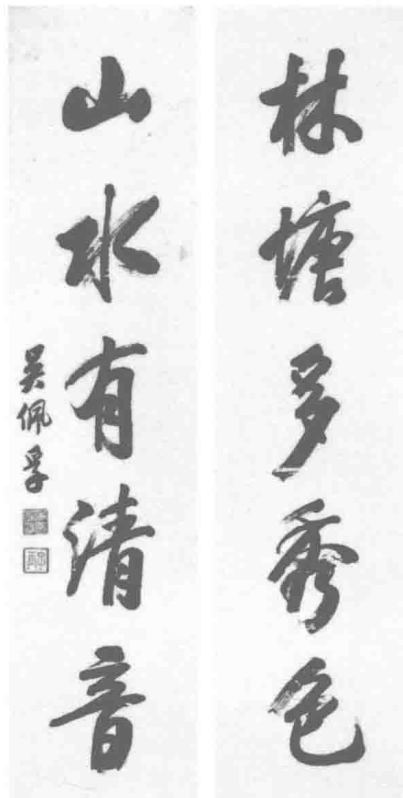 林塘多秀色
山水有清音
吳佩孚